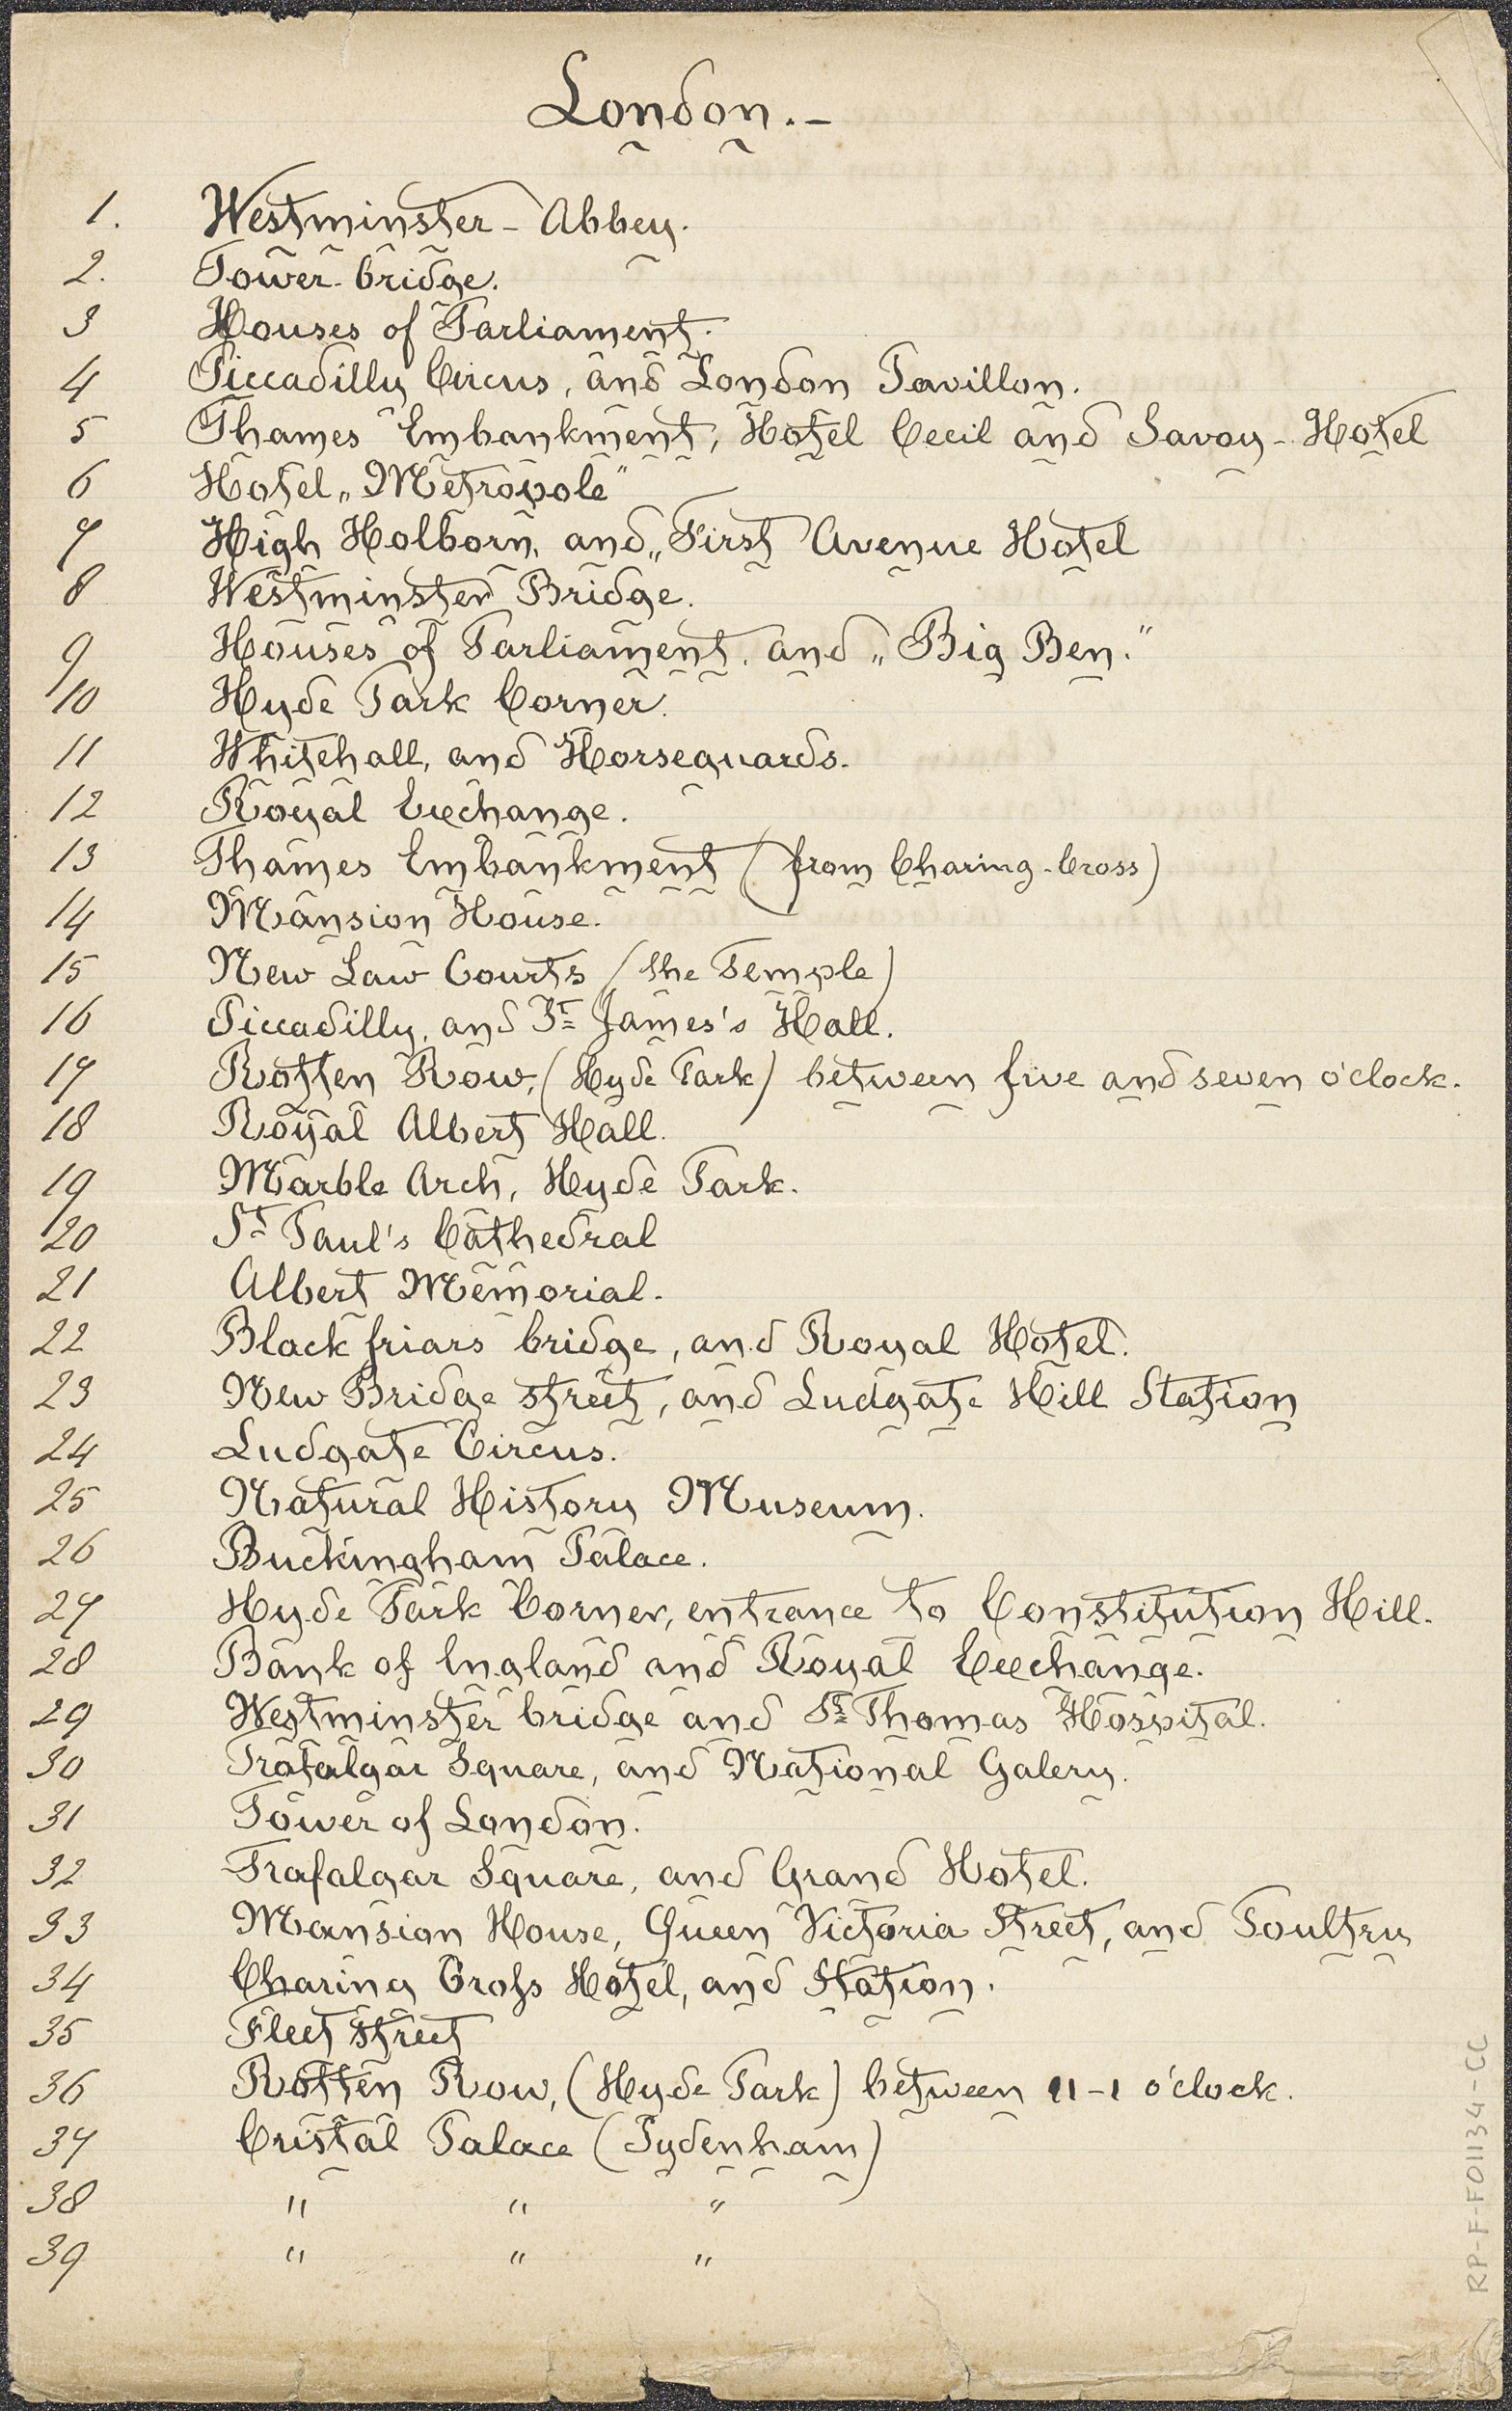 London.-
1. Westminster - Abbey.
2. Tower-bridge.
3 Houses of Parliament.
4 Piccadilly Circus, and London Pavillon.
5 Thames Embankment, Hotel Cecil and Savoy - Hotel
6 Hotel „Metropole"
7 High Holborn, and „First Avenue Hotel
8 Westminster Bridge.
9 Houses of Parliament, and „Big Ben."
10 Hyde Park Corner.
11 Whitehall, and Horseguards.
12 Royal Exchange.
13 Thames Embankment (from Charing-Cross)
14 Mansion House.
15 New Law Courts (the Temple)
16 Piccadilly, and St James's Hall.
17 Rotten Row, (Hyde Park) between five and seven o'clock.
18 Royal Albert Hall.
19 Marble Arch, Hyde Park.
20 St Paul's Cathedral
21 Albert Memorial.
22 Blackfriars bridge, and Royal Hotel.
23 New Bridge street, and Ludgate Hill Station
24 Ludgate Circus.
25 Natural History Museum.
26 Buckingham Palace.
27 Hyde Park Corner, entrance to Constitution Hill.
28 Bank of England and Royal Exchange.
29 Westminster bridge and St Thomas Hospital.
30 Trafalgar Square, and National Galery.
31 Tower of London.
32 Trafalgar Square, and Grand Hotel.
33 Mansion House, Queen Victoria Street, and Poultry
34 Charing Cross Hotel, and Station.
35 Fleet Street
36 Rotten Row, (Hyde Park) between 11-1 o'clock.
37 Cristal Palace (Sydenham)
38 " " "
39 " " "
RP-F-F01134-CC